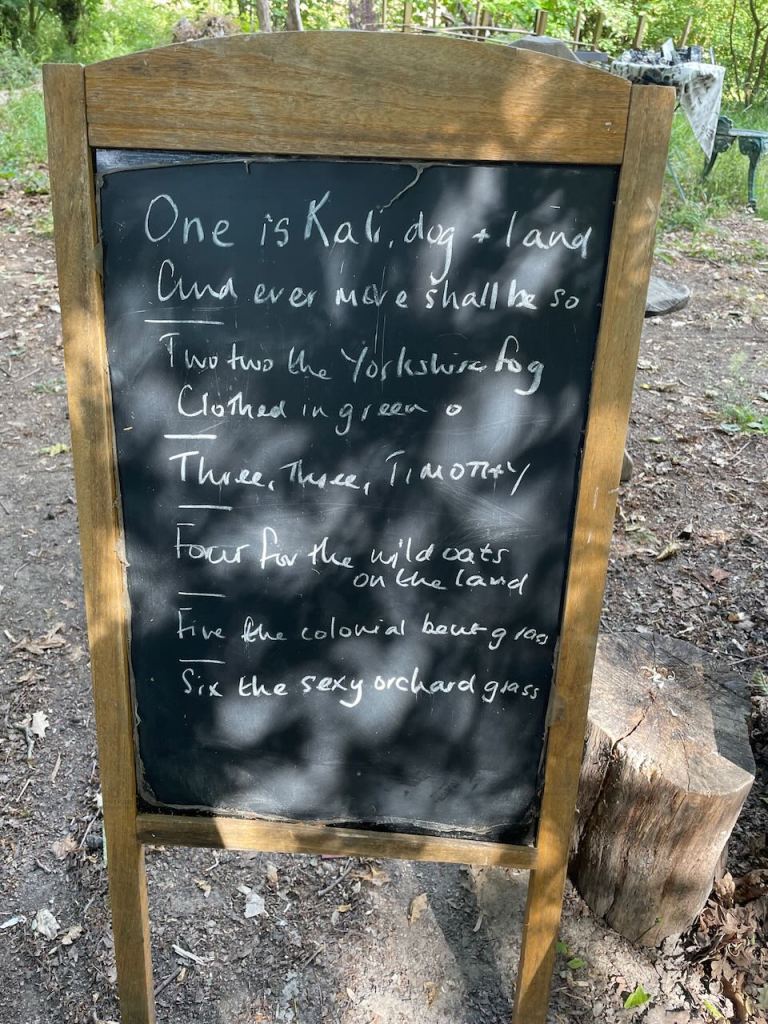 One is Kali, dog + land
And ever more shall be so
Two two the Yorkshire fog
Clothed in green o
Three, Three, TIMOTHY
Four for the wild oats
on the land
Five the colonial bent grass
Six the sexy orchard grass